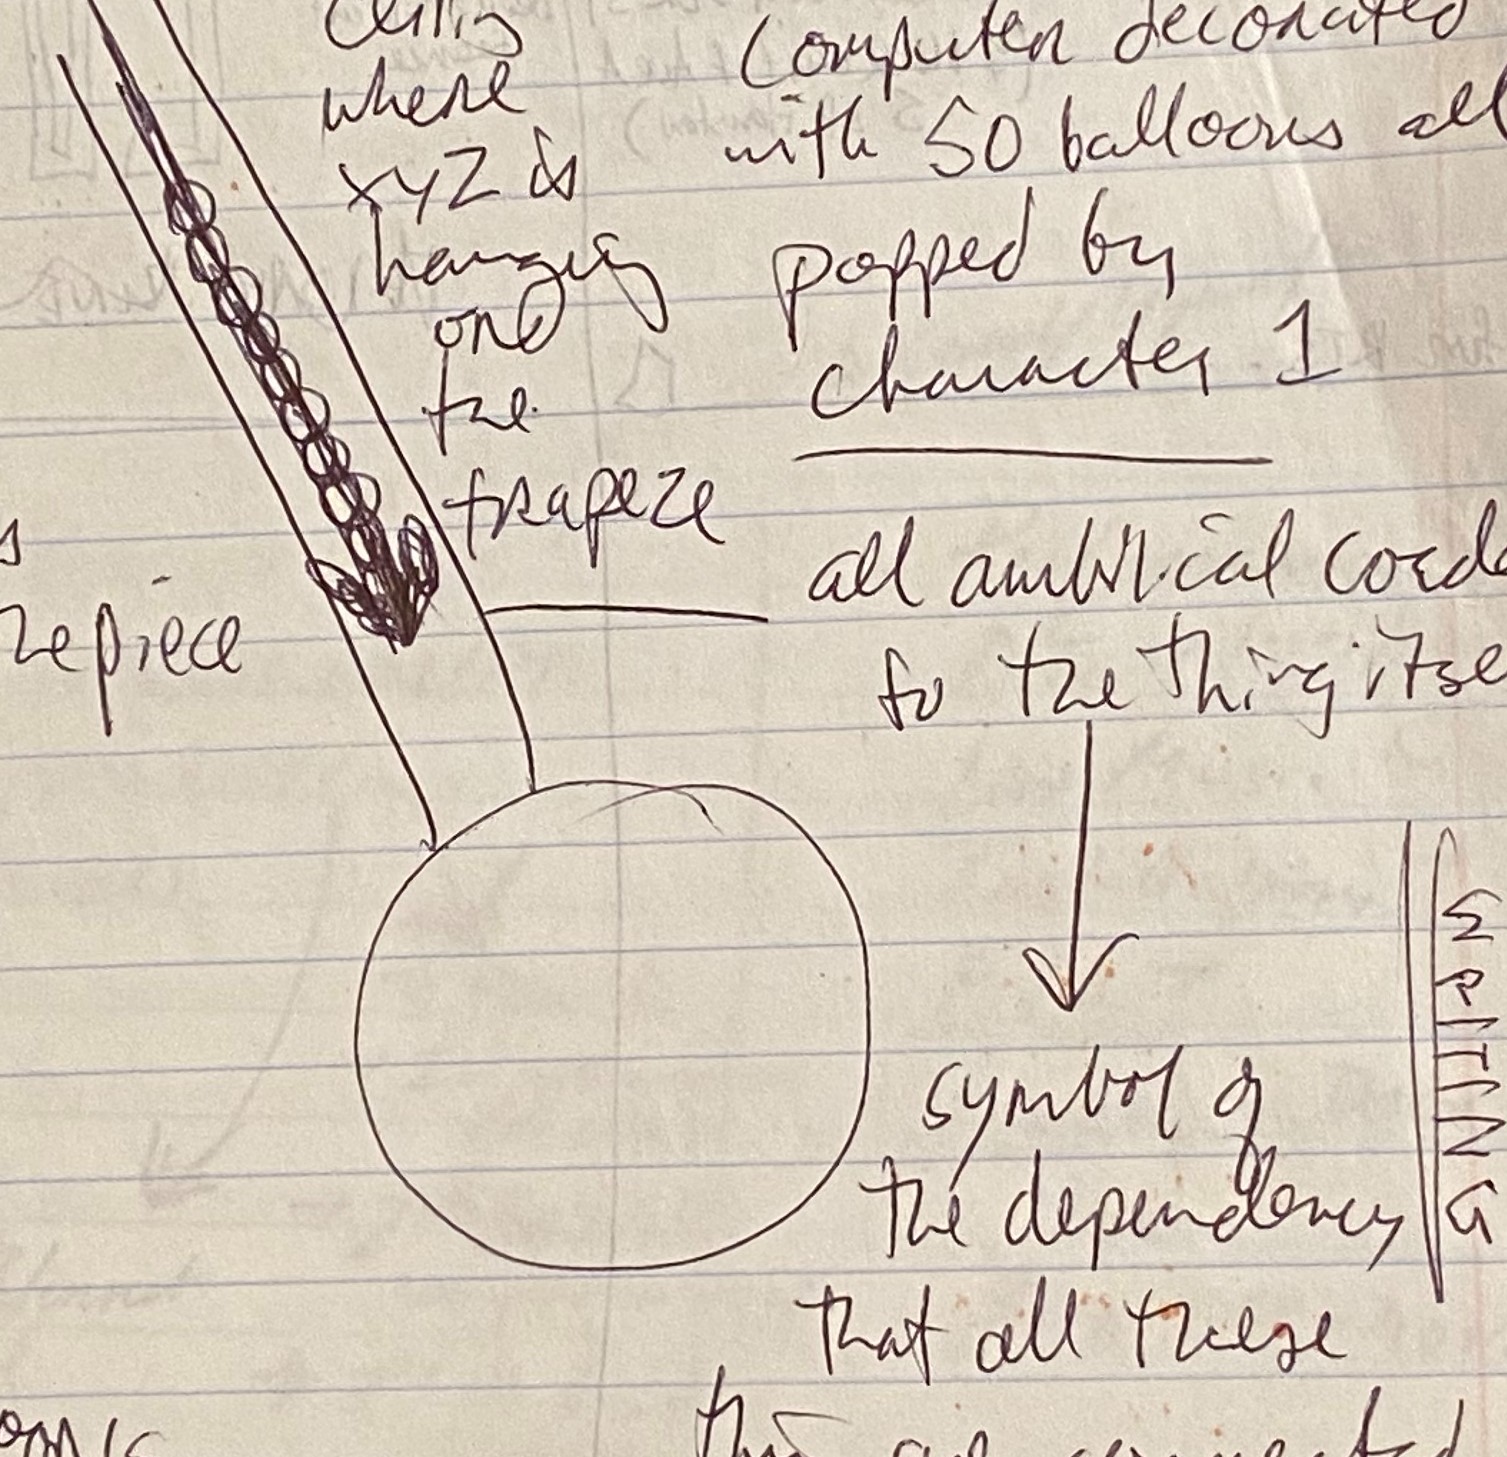 where
xyz is
hanging
one
the
trapeze
Computer decorated
with 50 balloons all
popped by
character 1
all ambilical cords
to the thing itse
symbol of
the dependency
that all these
connected
piece
WRITING